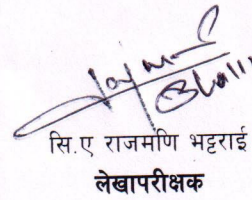 सि.ए राजमणि भट्टराई
लेखापरीक्षक